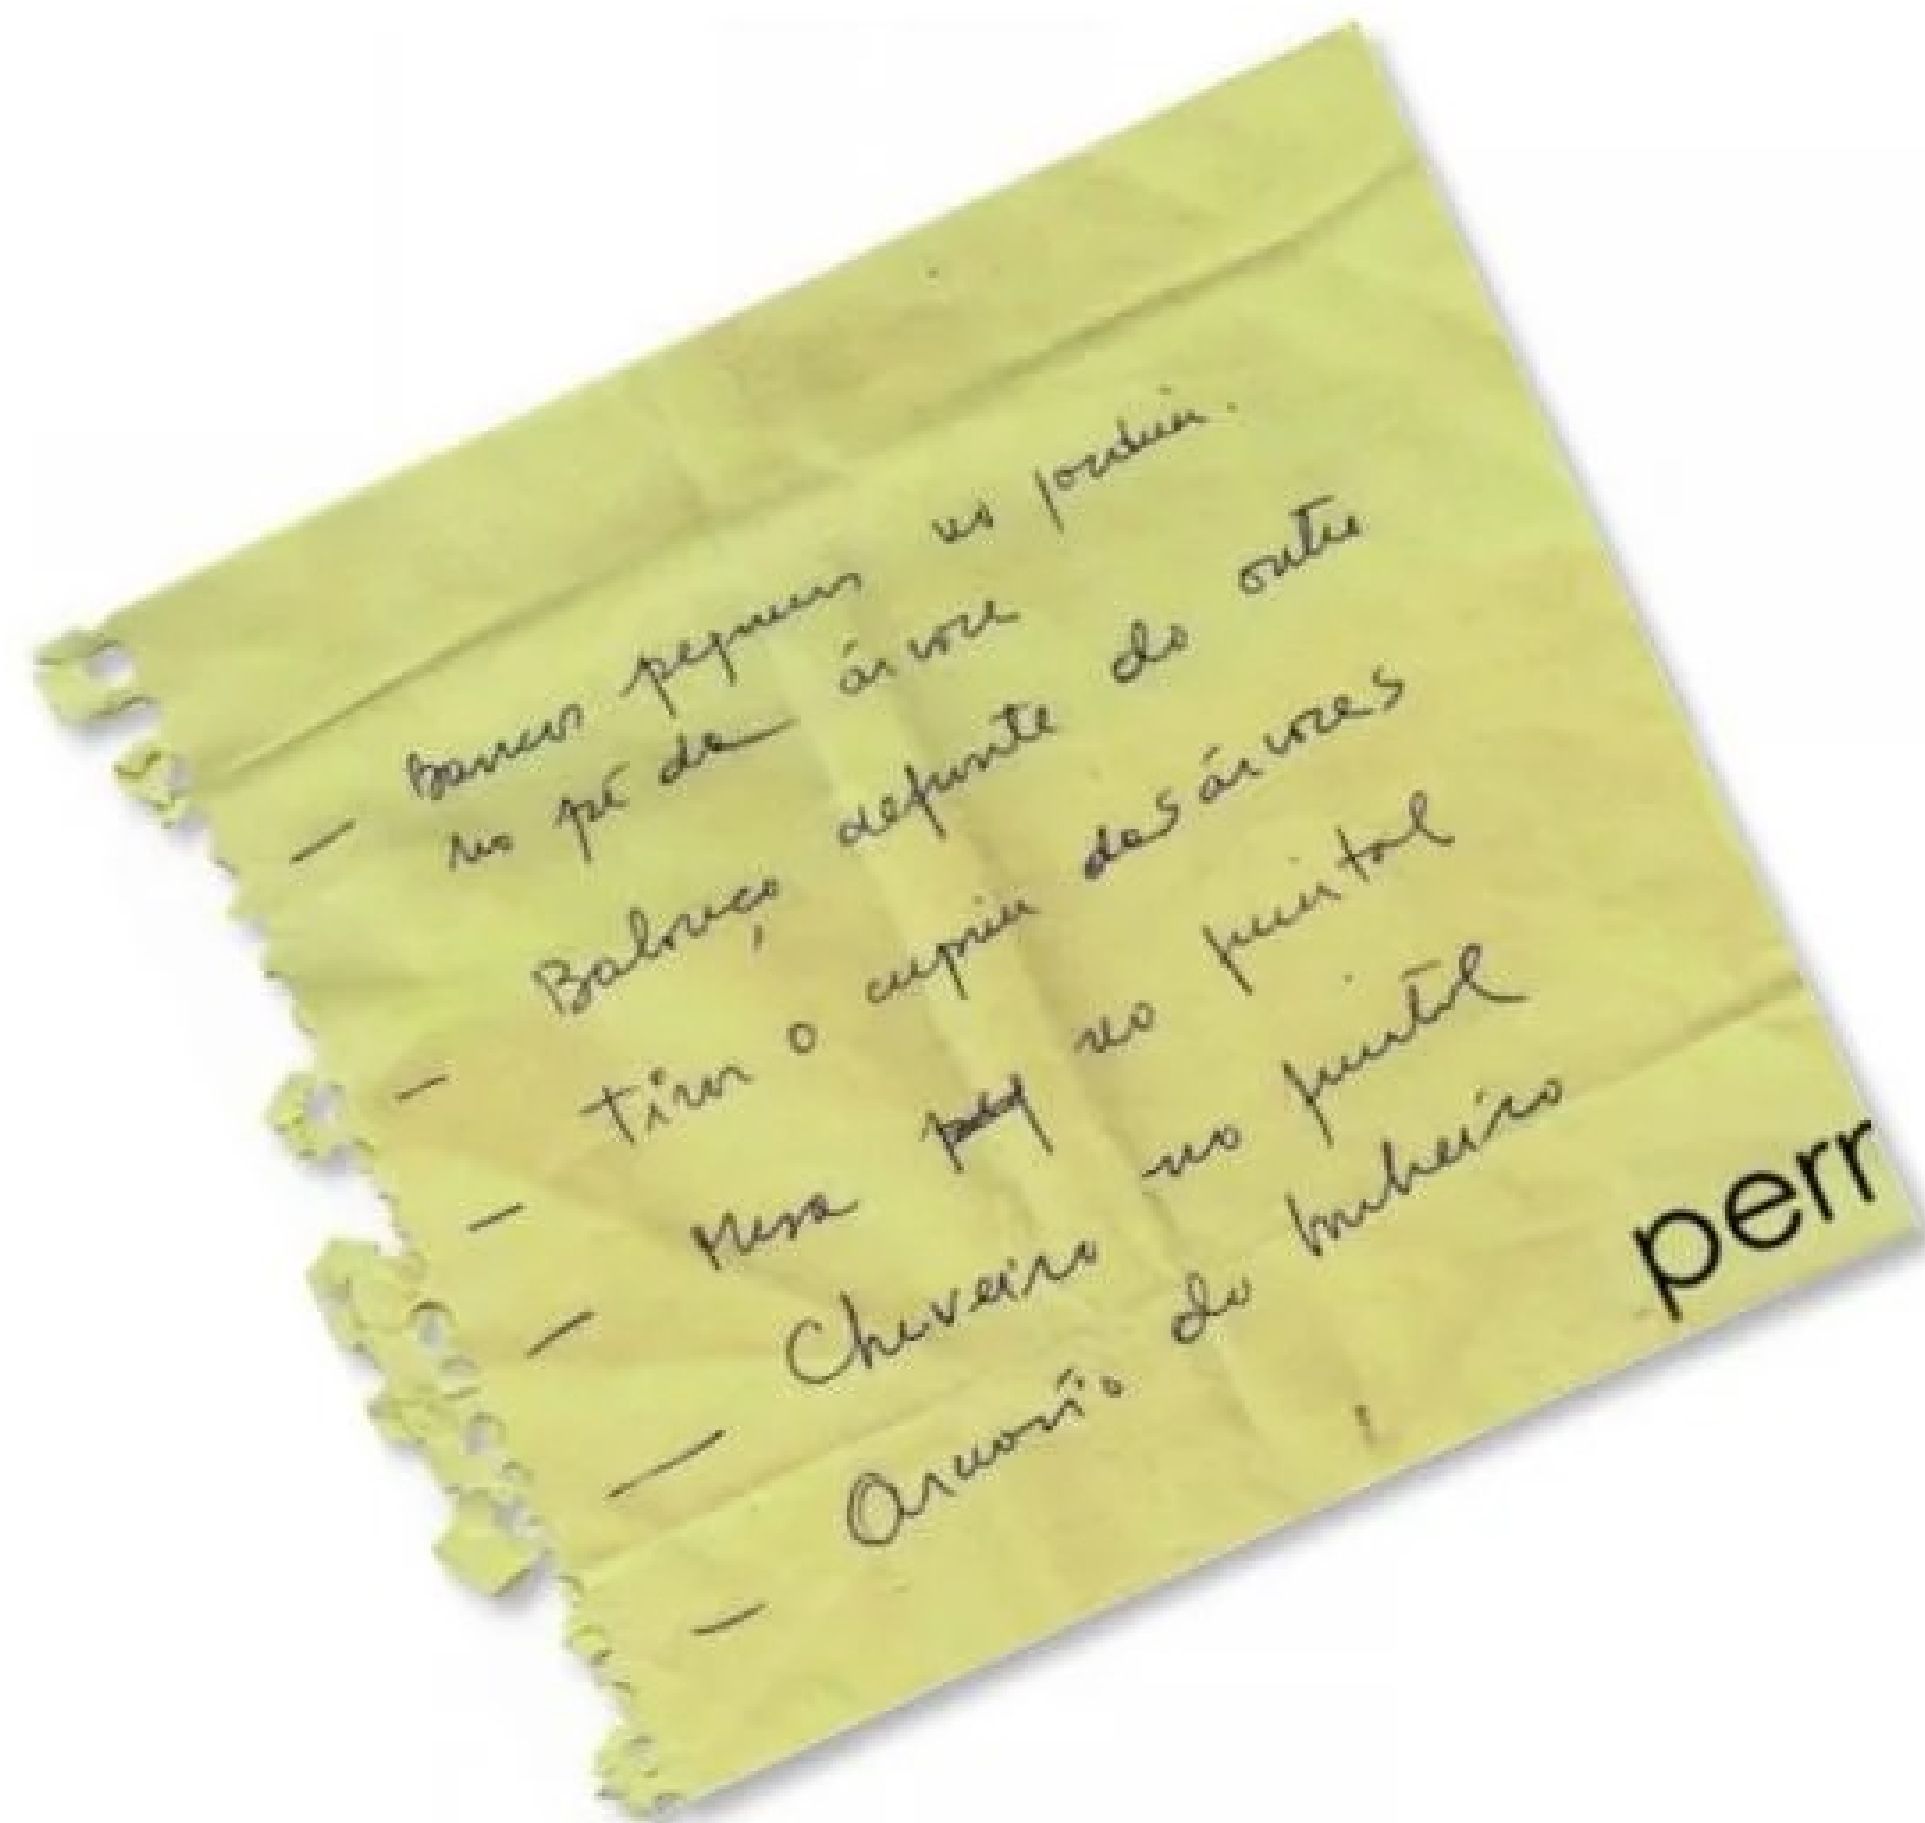 — Bancos pequenos no jardim.
no pé da árvore
— Balanço defronte do outro
— Tirar o cupim das árvores
— Mesa no quintal
— Chuveiro no quintal
— Armário do banheiro
perr